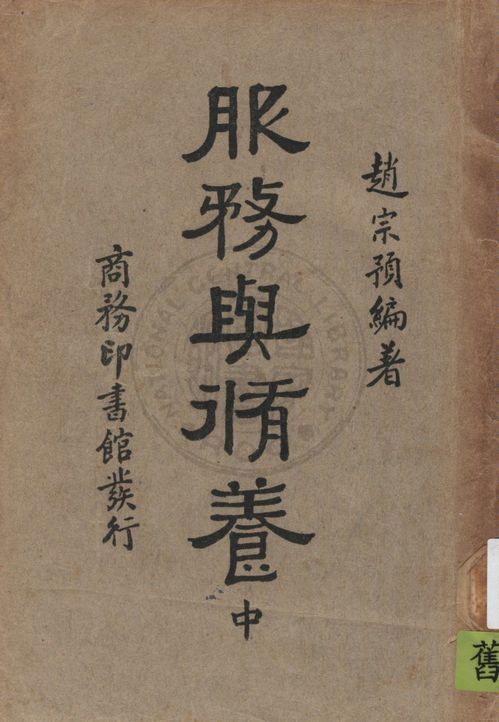 趙宗預編著
服務與脩養 中
商務印書館發行
NATIONAL CENTRAL LIBRARY
舊